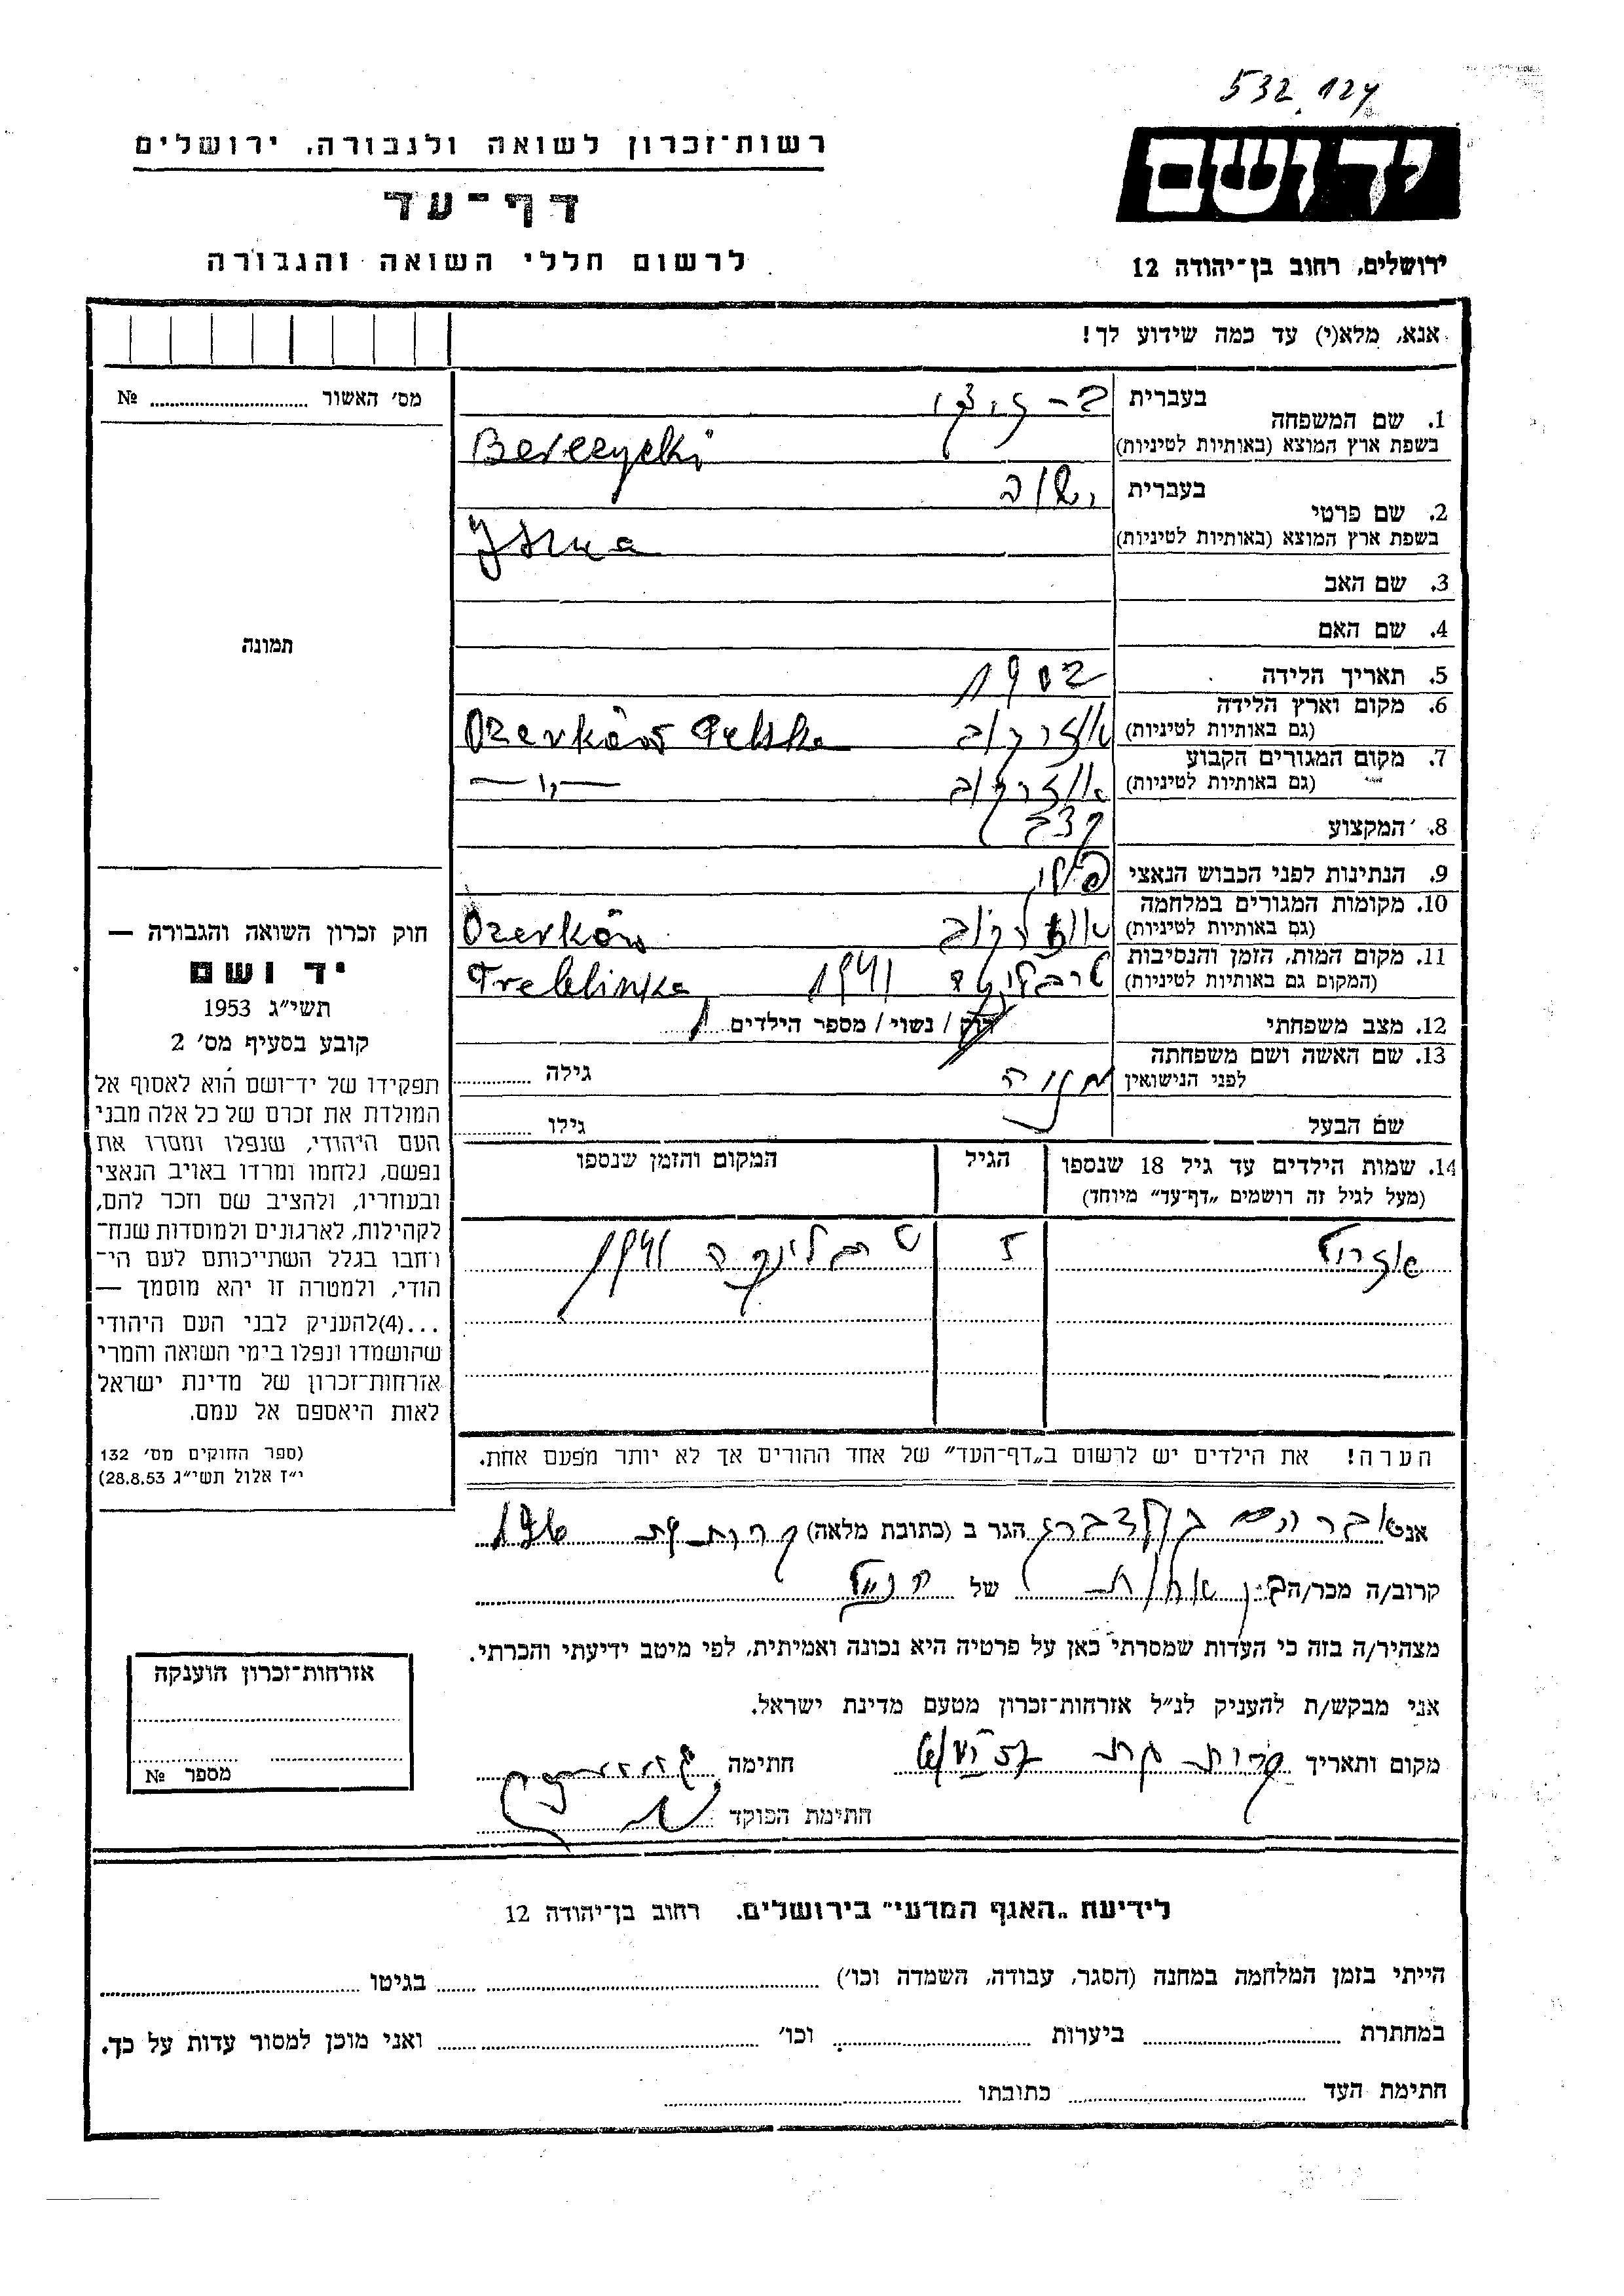 532 124
יד ושם
ירושלים, רחוב בן־יהודה 12
רשות־זכרון לשואה ולגבורה, ירושלים
דף־עד
לרשום חללי השואה והגבורה
אנא, מלא(י) עד כמה שידוע לך!
מס' האשור ........ №
תמונה
חוק זכרון השואה והגבורה —
יד ושם
תשי"ג 1953
קובע בסעיף מס' 2
תפקידו של יד־ושם הוא לאסוף אל
המולדת את זכרם של כל אלה מבני
העם היהודי, שנפלו ומסרו את
נפשם, נלחמו ומרדו באויב הנאצי
ובעוזריו, ולהציב שם וזכר להם,
לקהילות, לארגונים ולמוסדות שנח־
רחבו בגלל השתייכותם לעם הי־
הודי, ולמטרה זו יהא מוסמך —
...(4)להעניק לבני העם היהודי
שהושמדו ונפלו בימי השואה והמרי
אזרחות־זכרון של מדינת ישראל
לאות היאספם אל עמם.
(ספר החוקים מס' 132
י"ז אלול תשי"ג 28.8.53)
1. שם המשפחה בעברית
בשפת ארץ המוצא (באותיות לטיניות) Berczycki
2. שם פרטי בעברית
בשפת ארץ המוצא (באותיות לטיניות)
3. שם האב
4. שם האם
5. תאריך הלידה 1902
6. מקום וארץ הלידה
(גם באותיות לטיניות) אוזרקוב Ozerków Polska
7. מקום המגורים הקבוע
(גם באותיות לטיניות) אוזרקוב —"—
8. המקצוע קצב
9. הנתינות לפני הכבוש הנאצי פולני
10. מקומות המגורים במלחמה
(גם באותיות לטיניות) אוזרקוב Ozerków
11. מקום המות, הזמן והנסיבות
(המקום גם באותיות לטיניות) 1941 Treblinka
12. מצב משפחתי רוק / נשוי / מספר הילדים 1
13. שם האשה ושם משפחתה
לפני הנישואין גילה
שם הבעל גילו
14. שמות הילדים עד גיל 18 שנספו הגיל המקום והזמן שנספו
(מעל לגיל זה רושמים „דף־עד" מיוחד)
1941
הערה! את הילדים יש לרשום ב„דף־העד" של אחד ההורים אך לא יותר מפעם אחת.
אני אברהם גולדברג הגר ב (כתובת מלאה) קרית גת
קרוב/ה מכר/ה בן אחות של הנ"ל
מצהיר/ה בזה כי העדות שמסרתי כאן על פרטיה היא נכונה ואמיתית, לפי מיטב ידיעתי והכרתי.
אני מבקש/ת להעניק לנ"ל אזרחות־זכרון מטעם מדינת ישראל.
מקום ותאריך קרית גת חתימה
חתימת הפוקד
אזרחות־זכרון הוענקה
מספר №
לידיעת „האגף המדעי" בירושלים. רחוב בן־יהודה 12
הייתי בזמן המלחמה במחנה (הסגר, עבודה, השמדה וכו') ........ בגיטו ........
במחתרת ........ ביערות ........ וכו' ........ ואני מוכן למסור עדות על כך.
חתימת העד ........ כתובתו ........